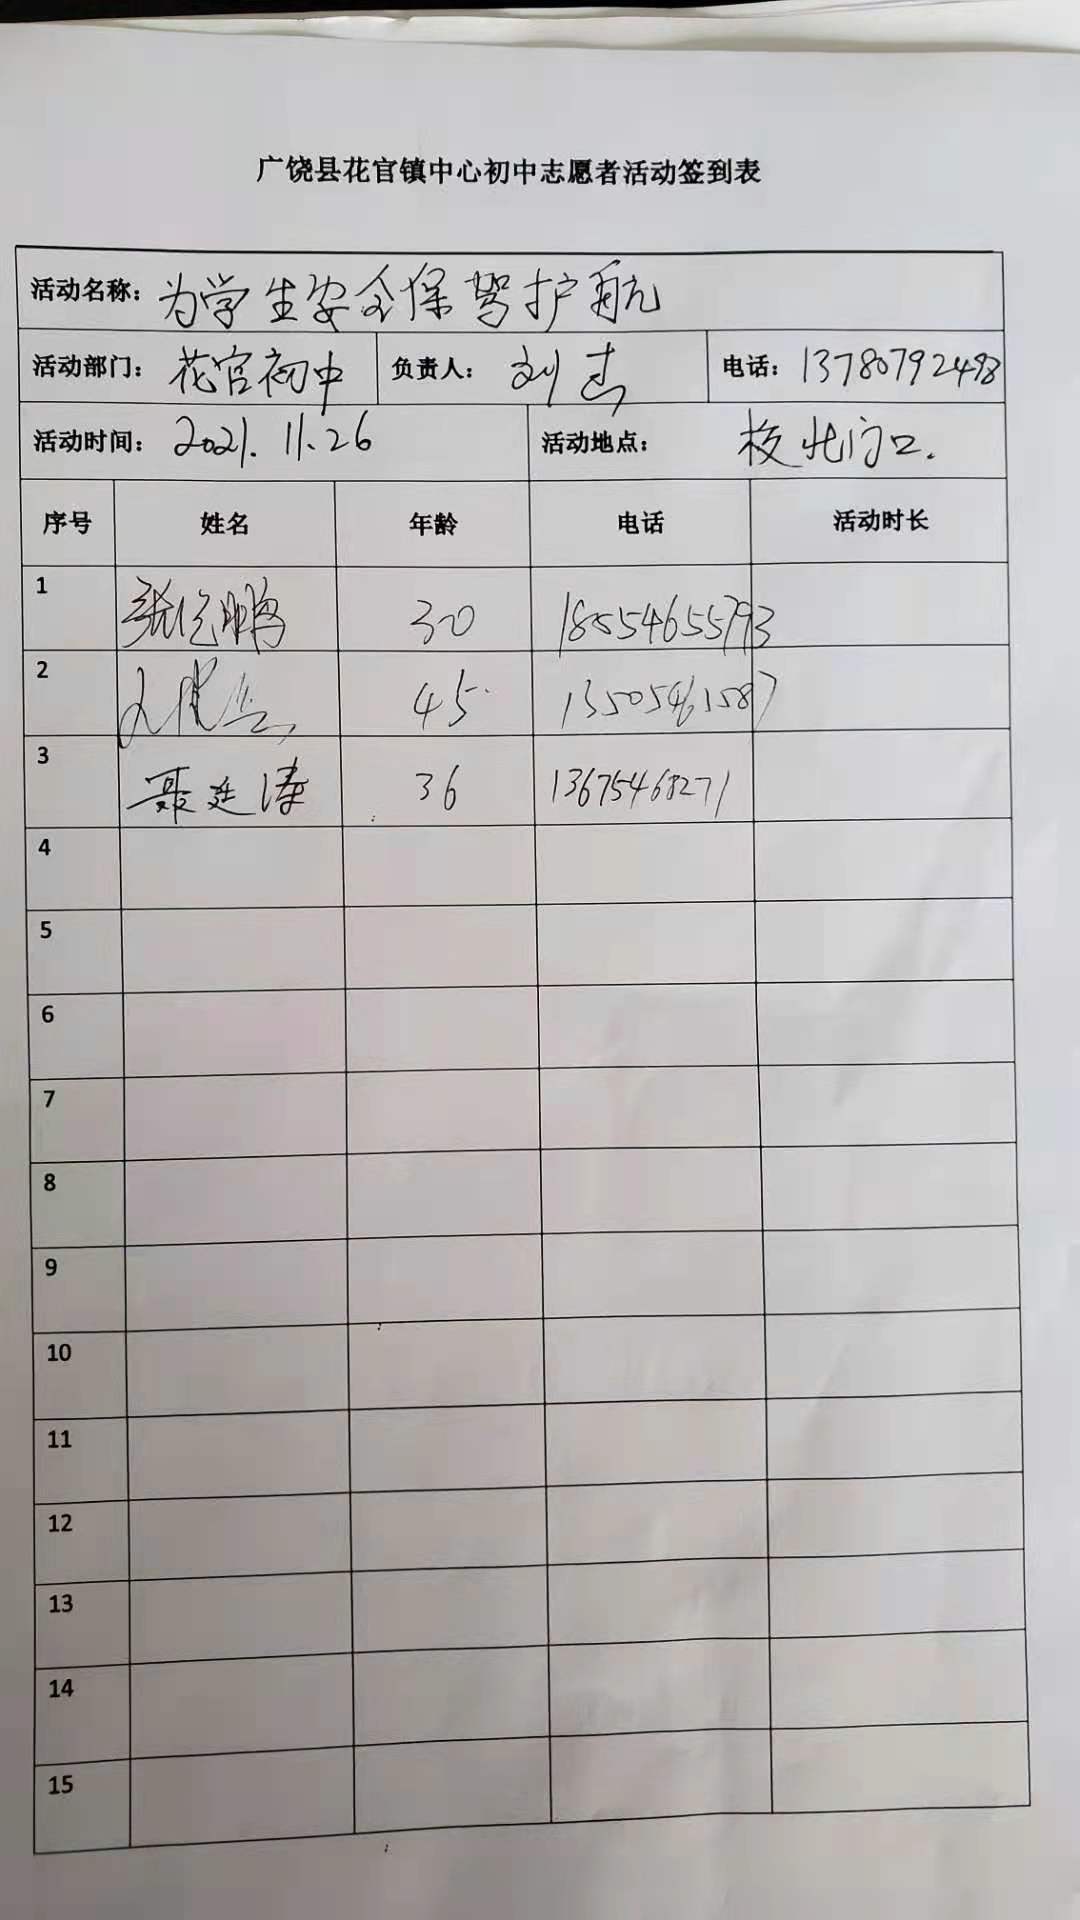 广饶县花官镇中心初中志愿者活动签到表
活动名称：为学生安全保驾护航
活动部门：花官初中 负责人：刘杰 电话：13780792498
活动时间：2021.11.26 活动地点：校北门口.
序号 姓名 年龄 电话 活动时长
1 张 鹏 30 18554655793
2 45 13505461587
3 聂廷涛 36 13675468271
4
5
6
7
8
9
10
11
12
13
14
15